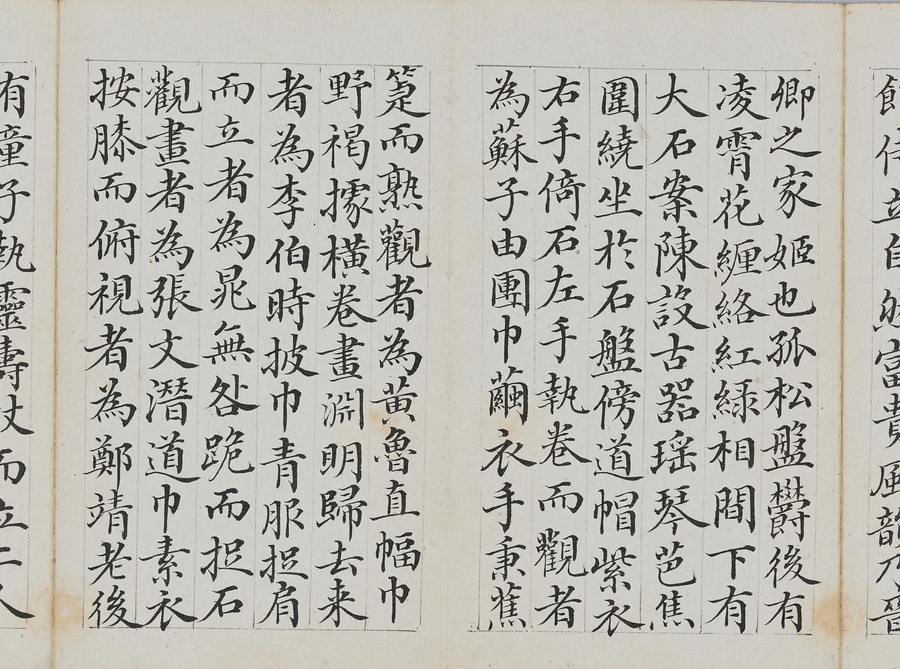 飾侍立自然富貴風韻乃晉
卿之家姬也孤松盤欝後有
凌霄花纏絡紅緑相間下有
大石案陳設古器瑶琴芭焦
圍繞坐於石盤傍道帽紫衣
右手倚石左手執卷而觀者
為蘇子由團巾繭衣手秉蕉
箑而熟觀者為黃魯直幅巾
野褐據橫卷畫淵明歸去来
者為李伯時披巾青服捉肩
而立者為晁無咎跪而捉石
觀畫者為張文潛道巾素衣
按膝而俯視者為鄭靖老後
有童子執靈壽杖而立二人